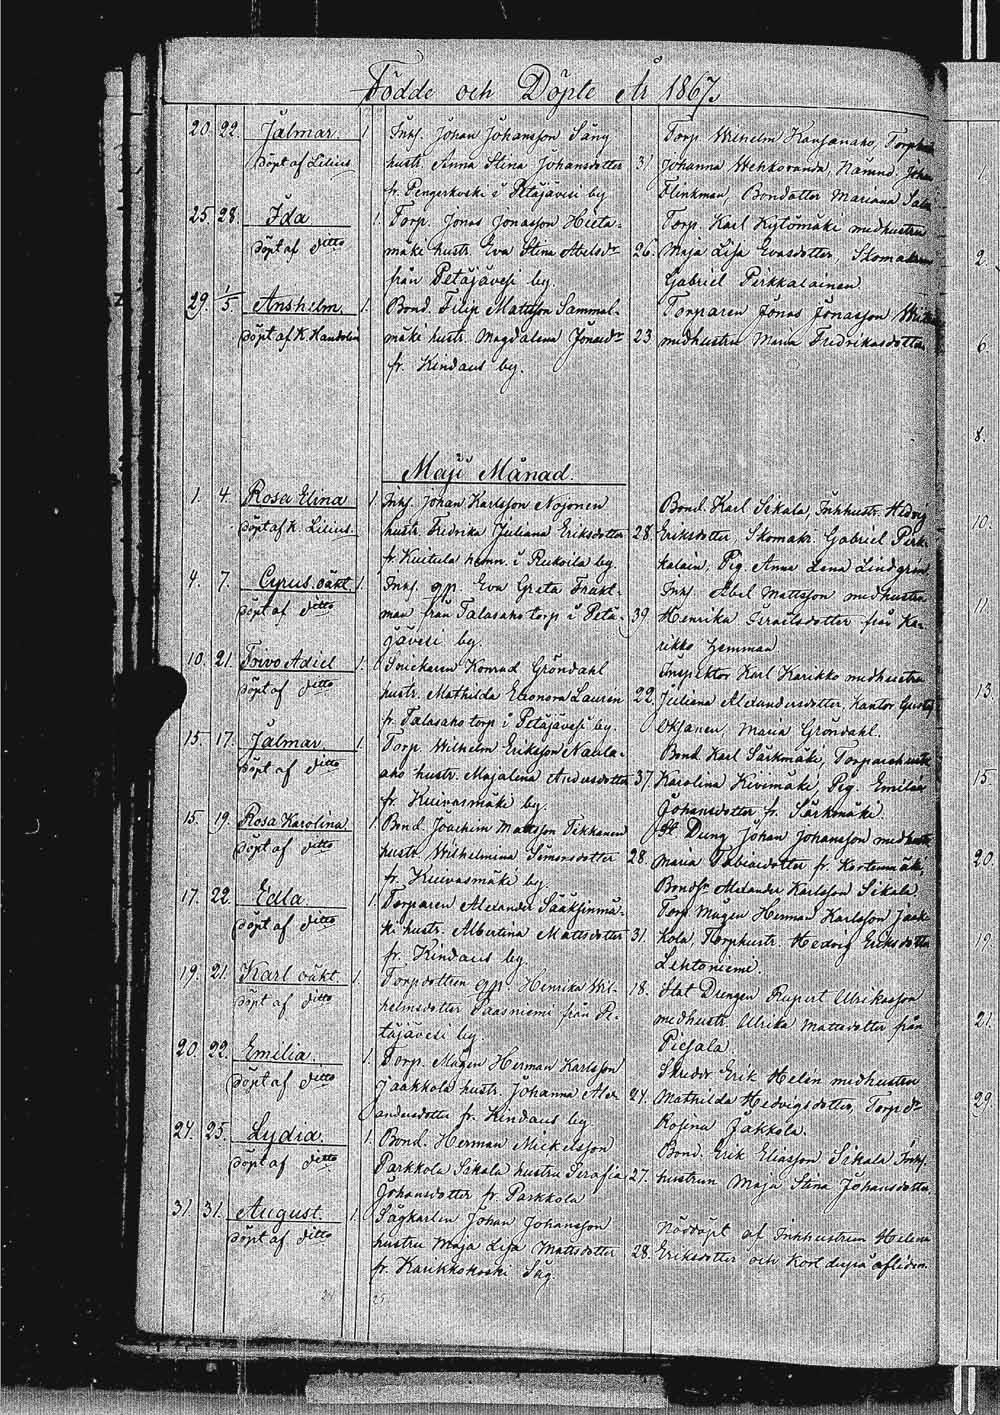 Födde och Döpte År 1867.
20. 22. Jalmar. 1. Inhs. Johan Johansson Säng Torp. Wilhelm Kaujanaho, Torp
Döpt af Lilius hustr. Anna Stina Johansdotter 31 Johanna Wehkoranda, Nämnd. Johan
fr. Pengerkoski i Petäjävesi by Flinkman, Bondotter Mariana
25. 28. Ida 1. Torp. Jonas Jonasson Hieta- Torp. Karl Kytömäki medhustru
Döpt af ditto mäki hustr. Eva Stina Abelsdr 26. Maja Lisa Evasdotter, Skomakaren
från Petäjävesi by. Gabriel Pirkkalainen.
29. 1/5. Anshelm. 1. Bond. Filip Mattsson Sammal- Torparen Jonas Jonasson
Döpt af K. Handolin mäki hustr. Magdalena Jonasdr 23 medhustru Maria Fredrikasdotter
fr. Kindaus by.
Maji Månad.
1. 4. Rosa Elina 1. Inhs. Johan Karlsson Nojonen Bond. Karl Sikala, Inhhustr. Hedvig
Döpt af K. Lilius. hustr. Fredrika Juliana Eriksdotter 28. Eriksdotter, Skomak. Gabriel Pirk-
fr. Kuitula hemn. i Kukoila by. kalain, Pig. Anna Lena Lindgren
4. 7. Cyrus. oäkt. 1. Inhs. qp. Eva Greta Frakt- Inhs. Abel Mattsson medhustru
Döpt af ditto man från Talasaho torp i Petä- 39 Henrika Israelsdotter från Ka-
jävesi by. rikko hemman
10. 21. Toivo Adiel 1. Snickaren Konrad Gröndahl Inspektor Karl Karikko medhustru
Döpt af ditto hustr. Mathilda Eleonora Lauren 22. Juliana Alexandersdotter, Kantor Gustaf
fr. Talasaho torp i Petäjävesi by. Oksanen, Maria Gröndahl.
15. 17. Jalmar. 1. Torp. Wilhelm Eriksson Naula- Bond. Karl Särkmäki, Torparehustr
Döpt af ditto aho hustr. Majalena Andersdotter 37. Karolina Kivimäki, Pig. Emilia
fr. Kuivasmäki by Johansdotter fr. Särkimäki.
15. 19. Rosa Karolina 1. Bond. Joachim Mattsson Tikkanen St Dreng Johan Johansson medhustr
Döpt af ditto hustr. Wilhelmina Simonsdotter 28. Maria Tobiasdotter fr. Kortenmäki,
fr. Kuivasmäki by. Bonds. Alexander Karlsson Sikala
17. 22. Edla. 1. Torparen Alexander Sääksjenmä- Torp Mågen Herman Karlsson Jaak-
Döpt af ditto ki hustr. Albertina Mattsdotter 31. Kola, Torphustr. Hedvig Eriksdotter
fr. Kindaus by. Lehtoniemi.
19. 21. Karl oäkt. 1. Torpdottren qp. Henrika Wil- 18. Stat Drengen Rupert Ulrikasson
Döpt af ditto helmsdotter Paasniemi från Pe- medhustr. Ulrika Mattsdotter från
täjävesi by. Piesala.
20. 22. Emilia. 1. Torp. Mågen Herman Karlsson Skreddr. Erik Helén medhustru
Döpt af ditto Jaakkola hustr. Johanna Alex- 24. Mathilda Hedvigsdotter, Torpdr
andersdotter fr. Kindaus by Rosina Jakkola.
24. 25. Lydia. 1. Bond. Herman Mickelsson Bond. Erik Eliasson Sikala Inhs.
Döpt af ditto Parkkola Sikala hustru Serafia 27. hustrun Maja Stina Johansdotter.
Johansdotter fr. Parkkola
31 31. August. 1. Sågkarlen Johan Johansson Nöddöpt af Inhhustrun Helena
Döpt af ditto hustru Maja Lisa Mattsdotter 28. Eriksdotter och kort derpå afliden.
fr. Kaukkokoski Såg